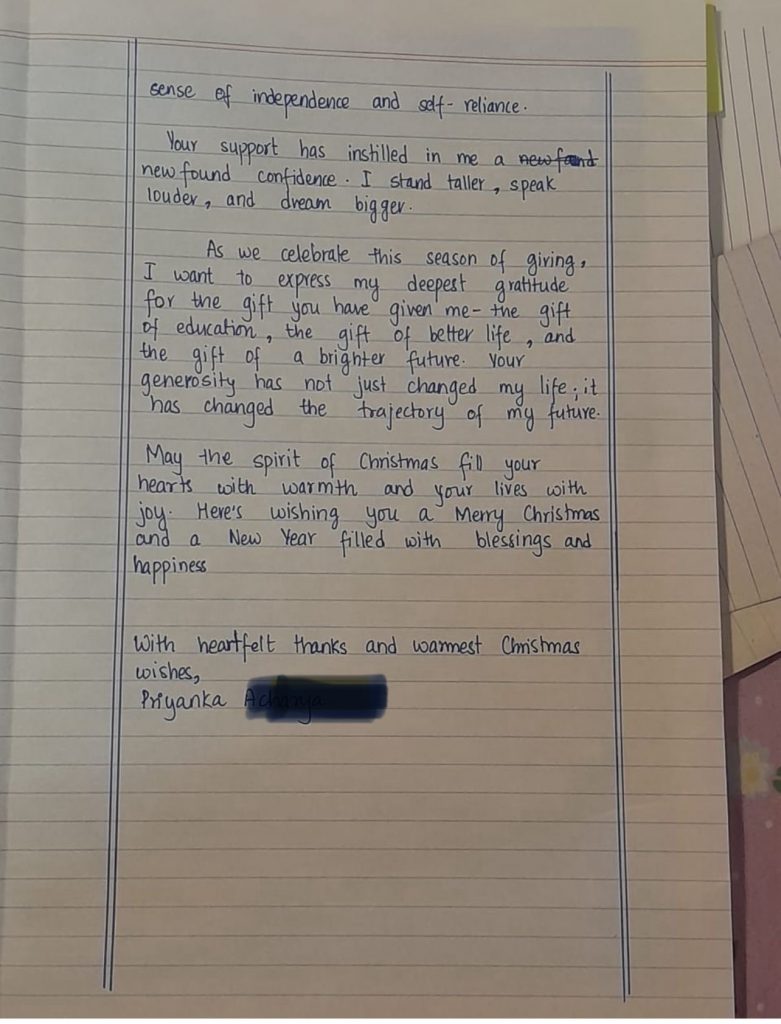 sense of independence and self-reliance.
Your support has instilled in me a newfound
new found confidence. I stand taller, speak
louder, and dream bigger.
As we celebrate this season of giving,
I want to express my deepest gratitude
for the gift you have given me- the gift
of education, the gift of better life, and
the gift of a brighter future. Your
generosity has not just changed my life; it
has changed the trajectory of my future.
May the spirit of Christmas fill your
hearts with warmth and your lives with
joy. Here's wishing you a Merry Christmas
and a New Year filled with blessings and
happiness
With heartfelt thanks and warmest Christmas
wishes,
Priyanka